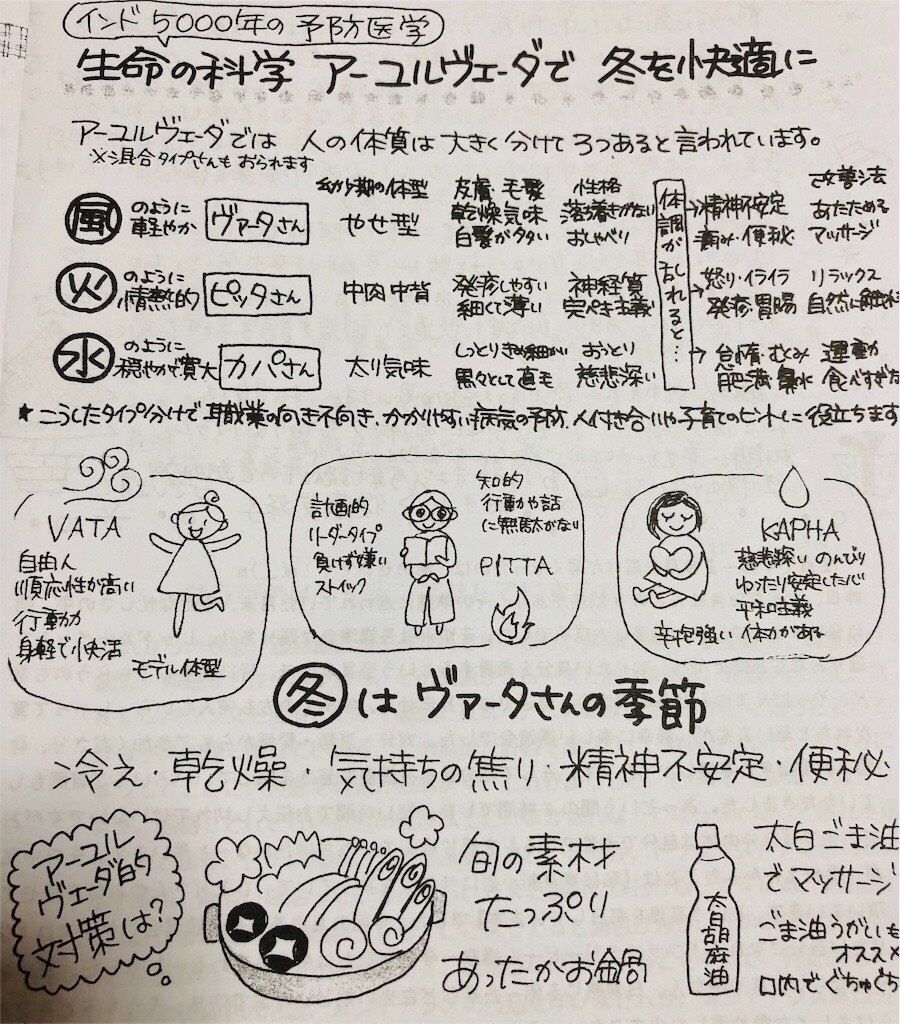 インド5000年の予防医学
生命の科学 アーユルヴェーダで 冬を快適に
アーユルヴェーダでは 人の体質は大きく分けて3つあると言われています。
※混合タイプさんもおられます
幼少期の体型 皮膚・毛髪 性格 体調が乱れると… 改善法
風 のように軽やか ヴァータさん やせ型 乾燥気味 白髪が多い 落ち着きがない おしゃべり → 精神不安定 痛み・便秘 あたためる マッサージ
火 のように情熱的 ピッタさん 中肉中背 発疹しやすい 細くて薄い 神経質 完ぺき主義 → 怒り・イライラ 発疹・胃腸 リラックス 自然に触れ
水 のように穏やかで寛大 カパさん 太り気味 しっとりきめ細かい 黒々として直毛 おっとり 慈悲深い → 怠惰・むくみ 肥満・鼻水 運動 食べすぎた
★こうしたタイプ分けで 職業の向き不向き、かかりやすい病気の予防、人付き合いや子育てのヒントに役立ちます
VATA
自由人
順応性が高い
行動力
身軽で快活
モデル体型
計画的
リーダータイプ
負けず嫌い
ストイック
知的
行動や話
に無駄がない
PITTA
KAPHA
慈悲深い のんびり
ゆったり安定した心
平和主義
辛抱強い 体力がある
冬はヴァータさんの季節
冷え・乾燥 気持ちの焦り・精神不安定・便秘
アーユル
ヴェーダ的
対策は?
旬の素材
たっぷり
あったかお鍋
太白胡麻油
太白ごま油
でマッサージ
ごま油うがいも
オススメ
口内でぐちゅぐち